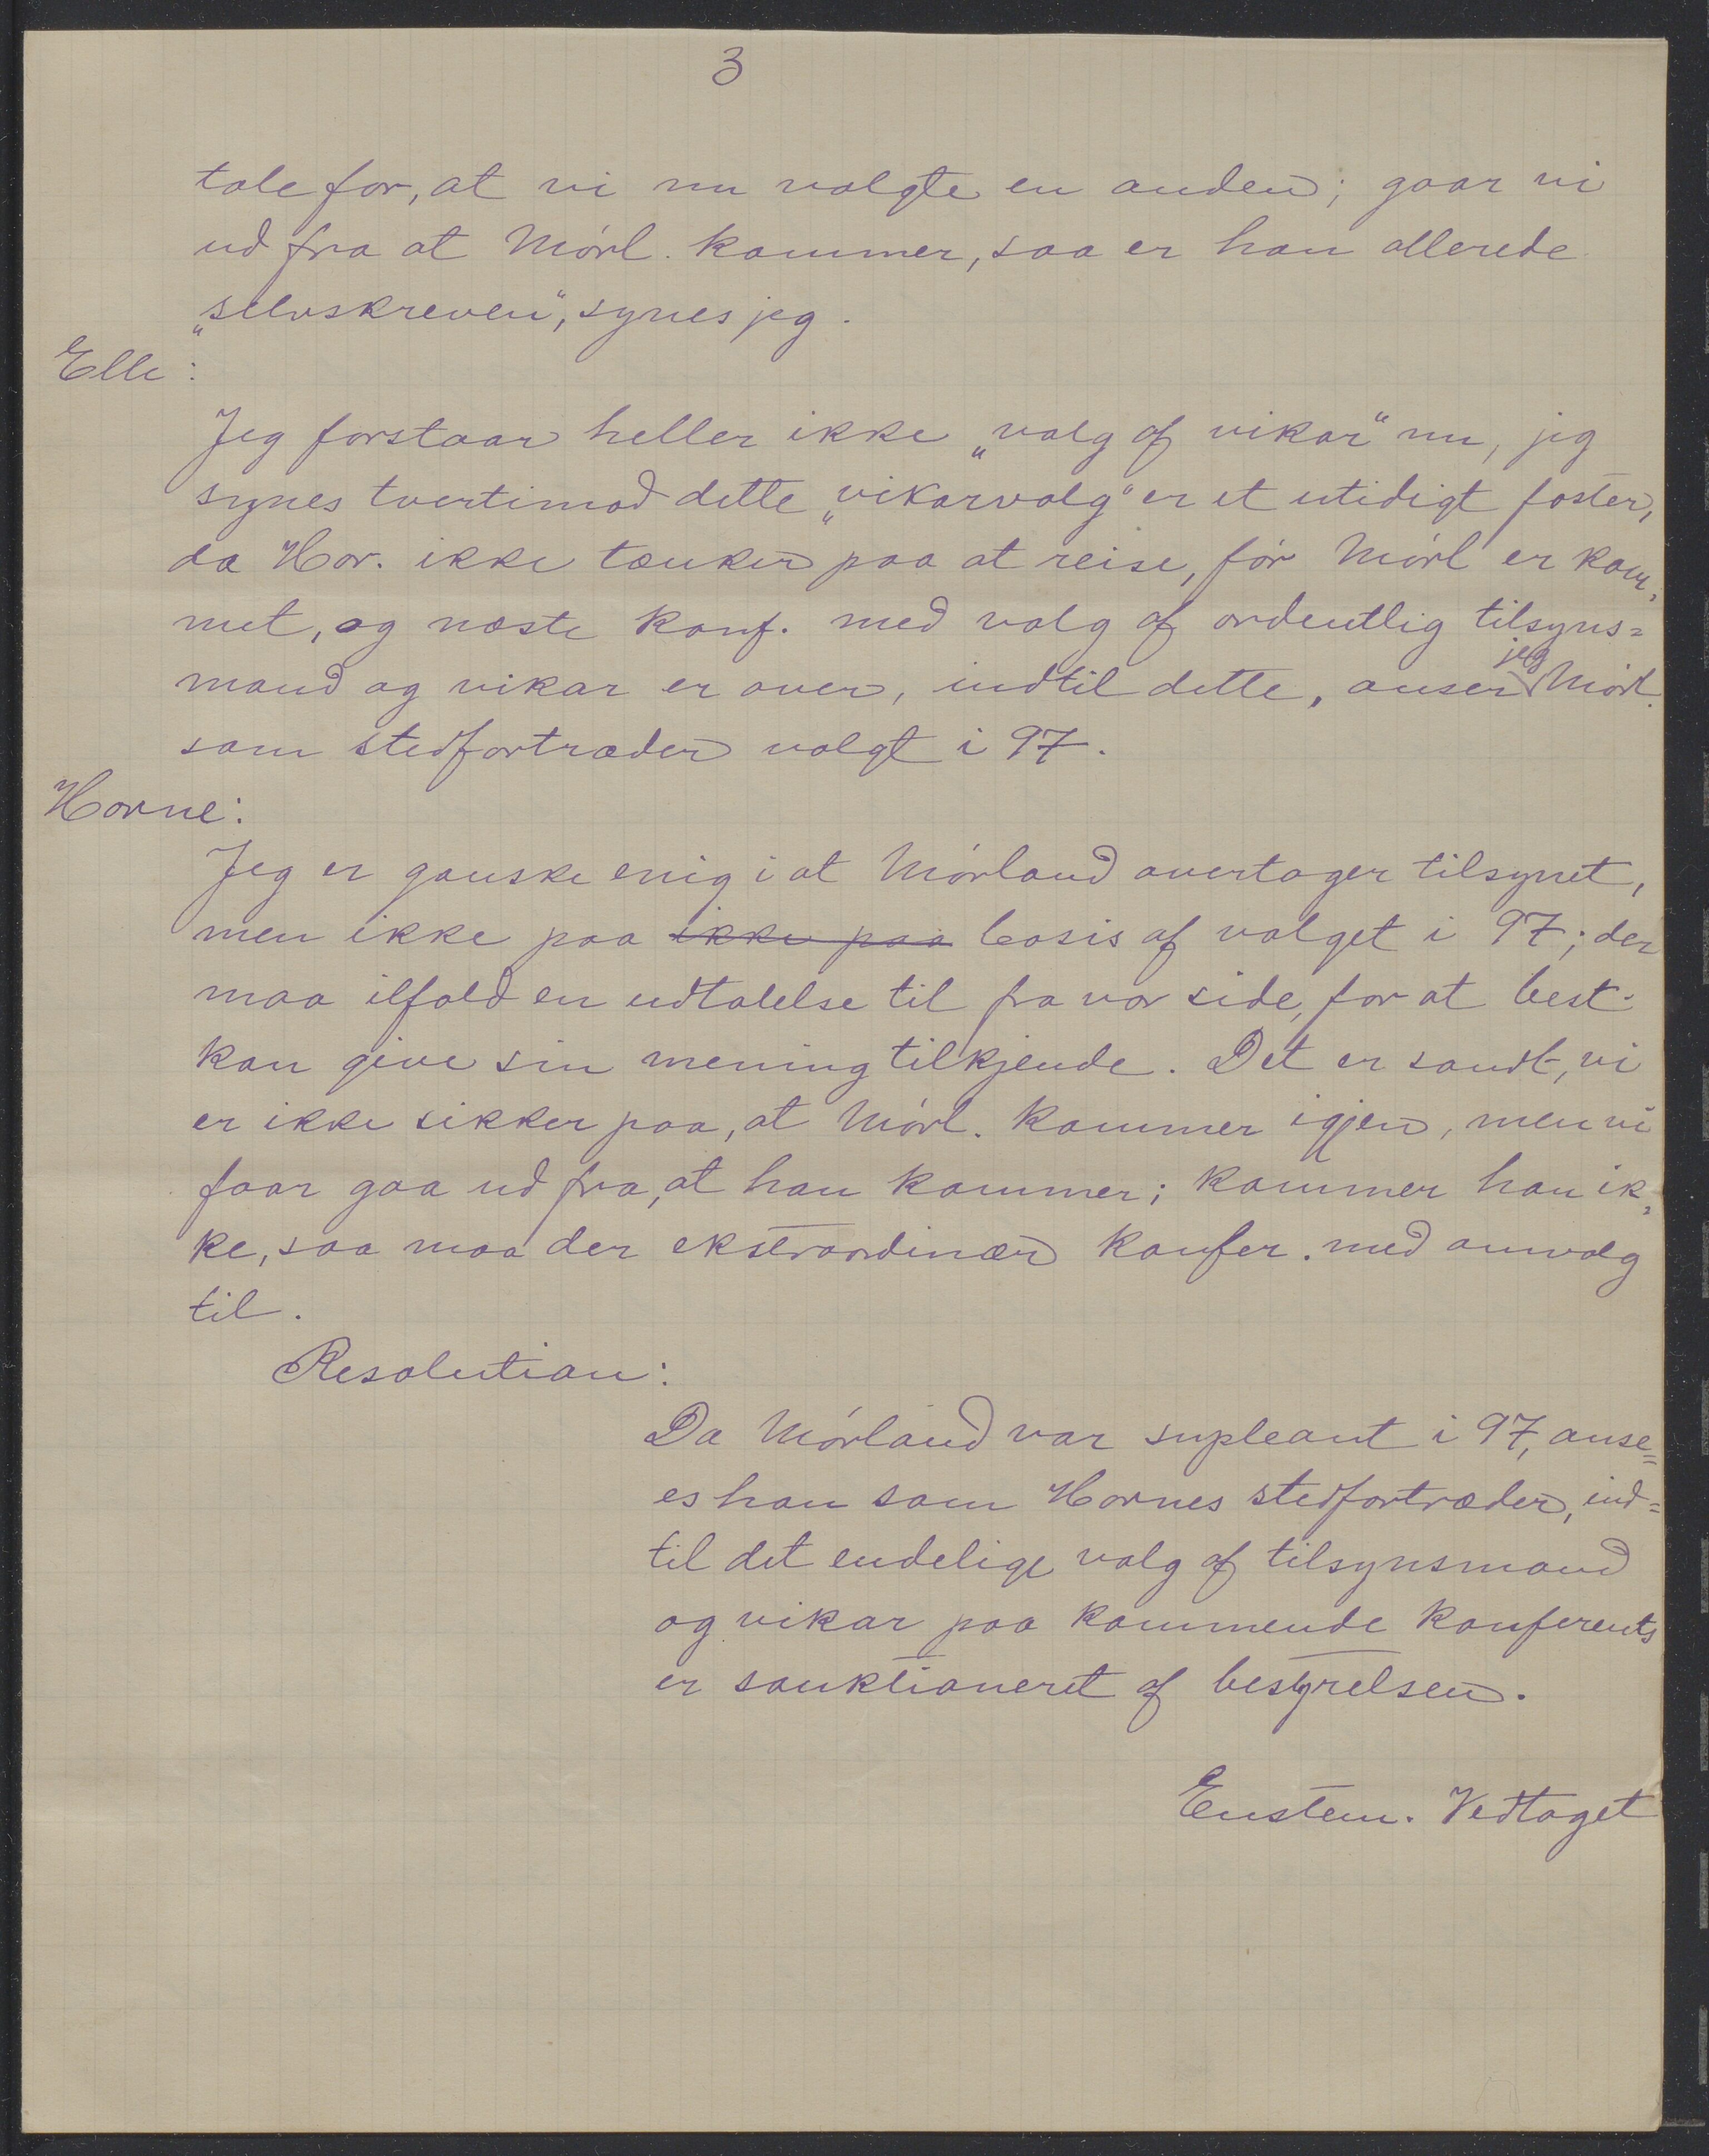 3
tale for, at vi nu valgte en anden; gaar vi
ud fra at Mørl. kommer, saa er han allerede
„selvskreven“, synes jeg.
Elle:
Jeg forstaar heller ikke „valg af vikar“ nu, jeg
synes tvertimod dette „vikarvalg“ er et utidigt foster,
da Hor. ikke tænker paa at reise, før Mørl er kom-
met, og næste konf. med valg af ordentlig tilsyns=
mand og vikar er over, indtil dette, anser jeg Mørl.
som stedfortræder valgt i 97.
Horne:
Jeg er ganske enig i at Mørland overtager tilsynet,
men ikke paa ikke paa basis af valget i 97; der
maa ifald en udtalelse til fra vor side, for at best.
kan give sin mening tilkjende. Det er sandt, vi
er ikke sikker paa, at Mørl. kommer igjen, men vi
faar gaa ud fra, at han kommer; kommer han ik-
ke, saa maa der ekstraordinær konfer. med omvalg
til.
Resolution:
Da Mørland var supleant i 97, anse=
es han som Hornes stedfortræder, ind=
til det endelige valg af tilsynsmand
og vikar paa kommende konferents
er sanktioneret af bestyrelsen.
Enstem. Vedtaget